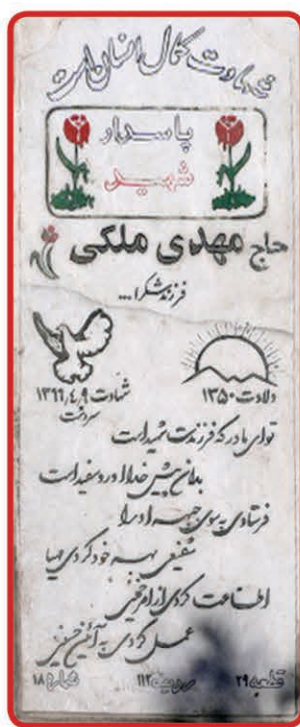 شهادت کمال انسان است
پاسدار
شهید
حاج مهدی ملکی
فرزند شکرا...
ولادت ۱۳۵۰
شهادت ۱۳۶۶٫۴٫۹
سردشت
توای مادر که فرزندت شهید است
بدان پیش خدا رو سفید است
فرستادی به سوی جبهه او را
شفیعی بهر خود کردی مهیا
اطاعت کردی از امر خمینی
عمل کردی به آئین حسینی
قطعه ۲۹ ردیف ۱۱۲ شماره ۱۸